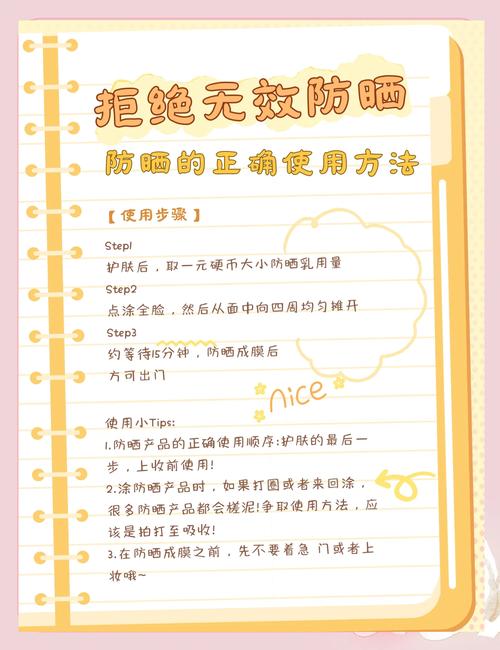 拒绝无效防晒
防晒的正确使用方法
【使用步骤】
Step1
护肤后，取一元硬币大小防晒乳用量
Step2
点涂全脸，然后从面中向四周均匀摊开
Step3
约等待15分钟，防晒成膜后
方可出门
nice
使用小Tips:
1.防晒产品的正确使用顺序:护肤的最后一
步，上收前使用!
2.涂防晒产品时，如果打圈或者来回涂，
很多防晒产品都会槎泥!争取使用方法，应
该是拍打至吸收!
3.在防晒成膜之前，先不要着急 门或者上
妆哦~